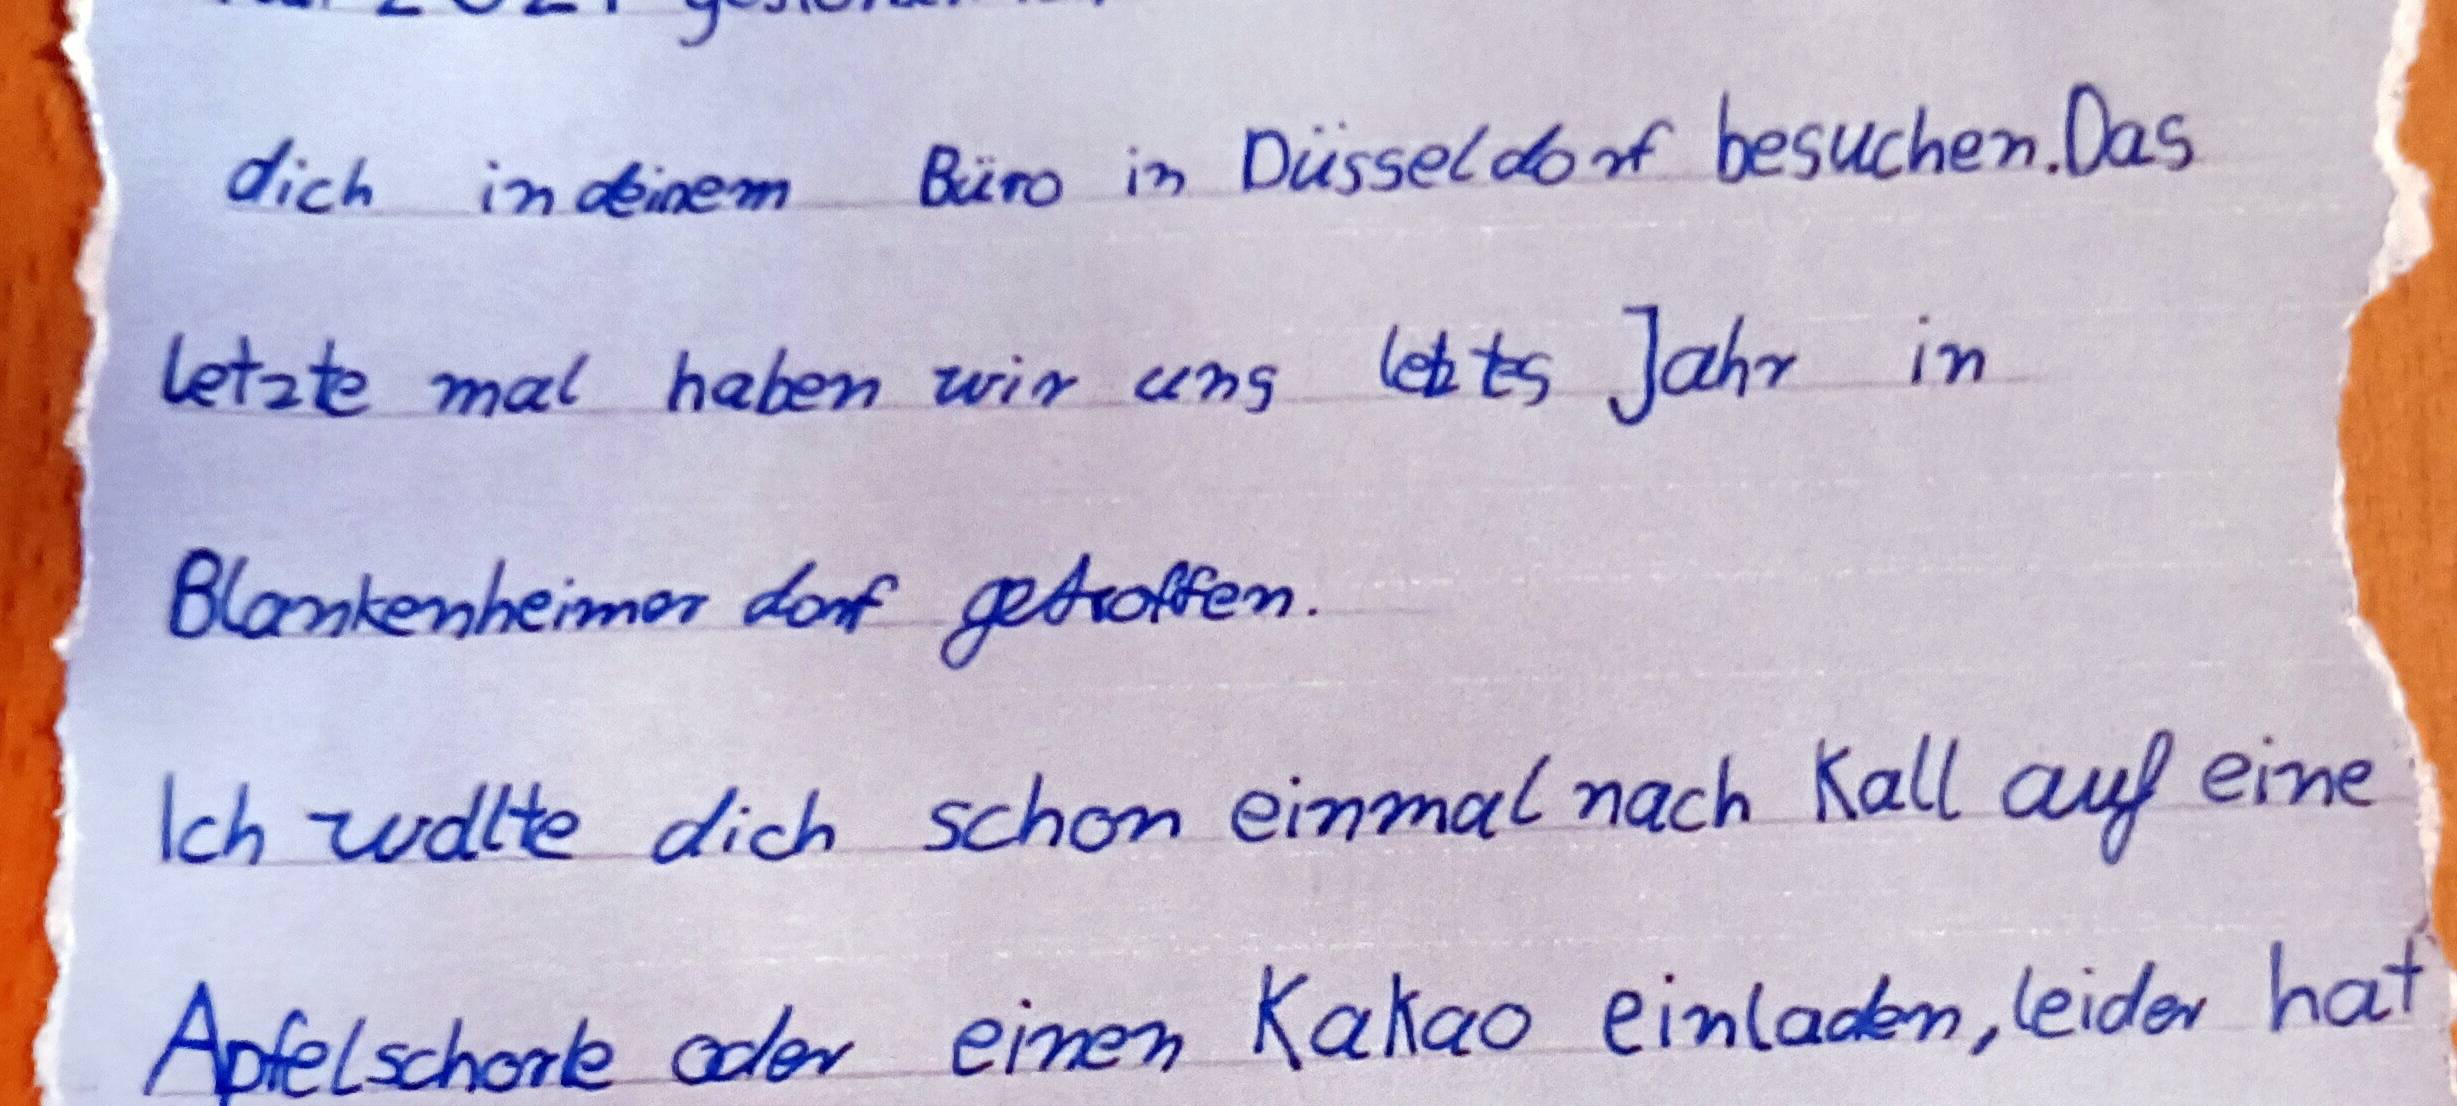 2021
dich in deinem Büro in Düsseldorf besuchen. Das
letzte mal haben wir uns letzts Jahr in
Blankenheimer dorf getroffen.
Ich wollte dich schon einmal nach Kall auf eine
Apfelschorle oder einen Kakao einladen, leider hat